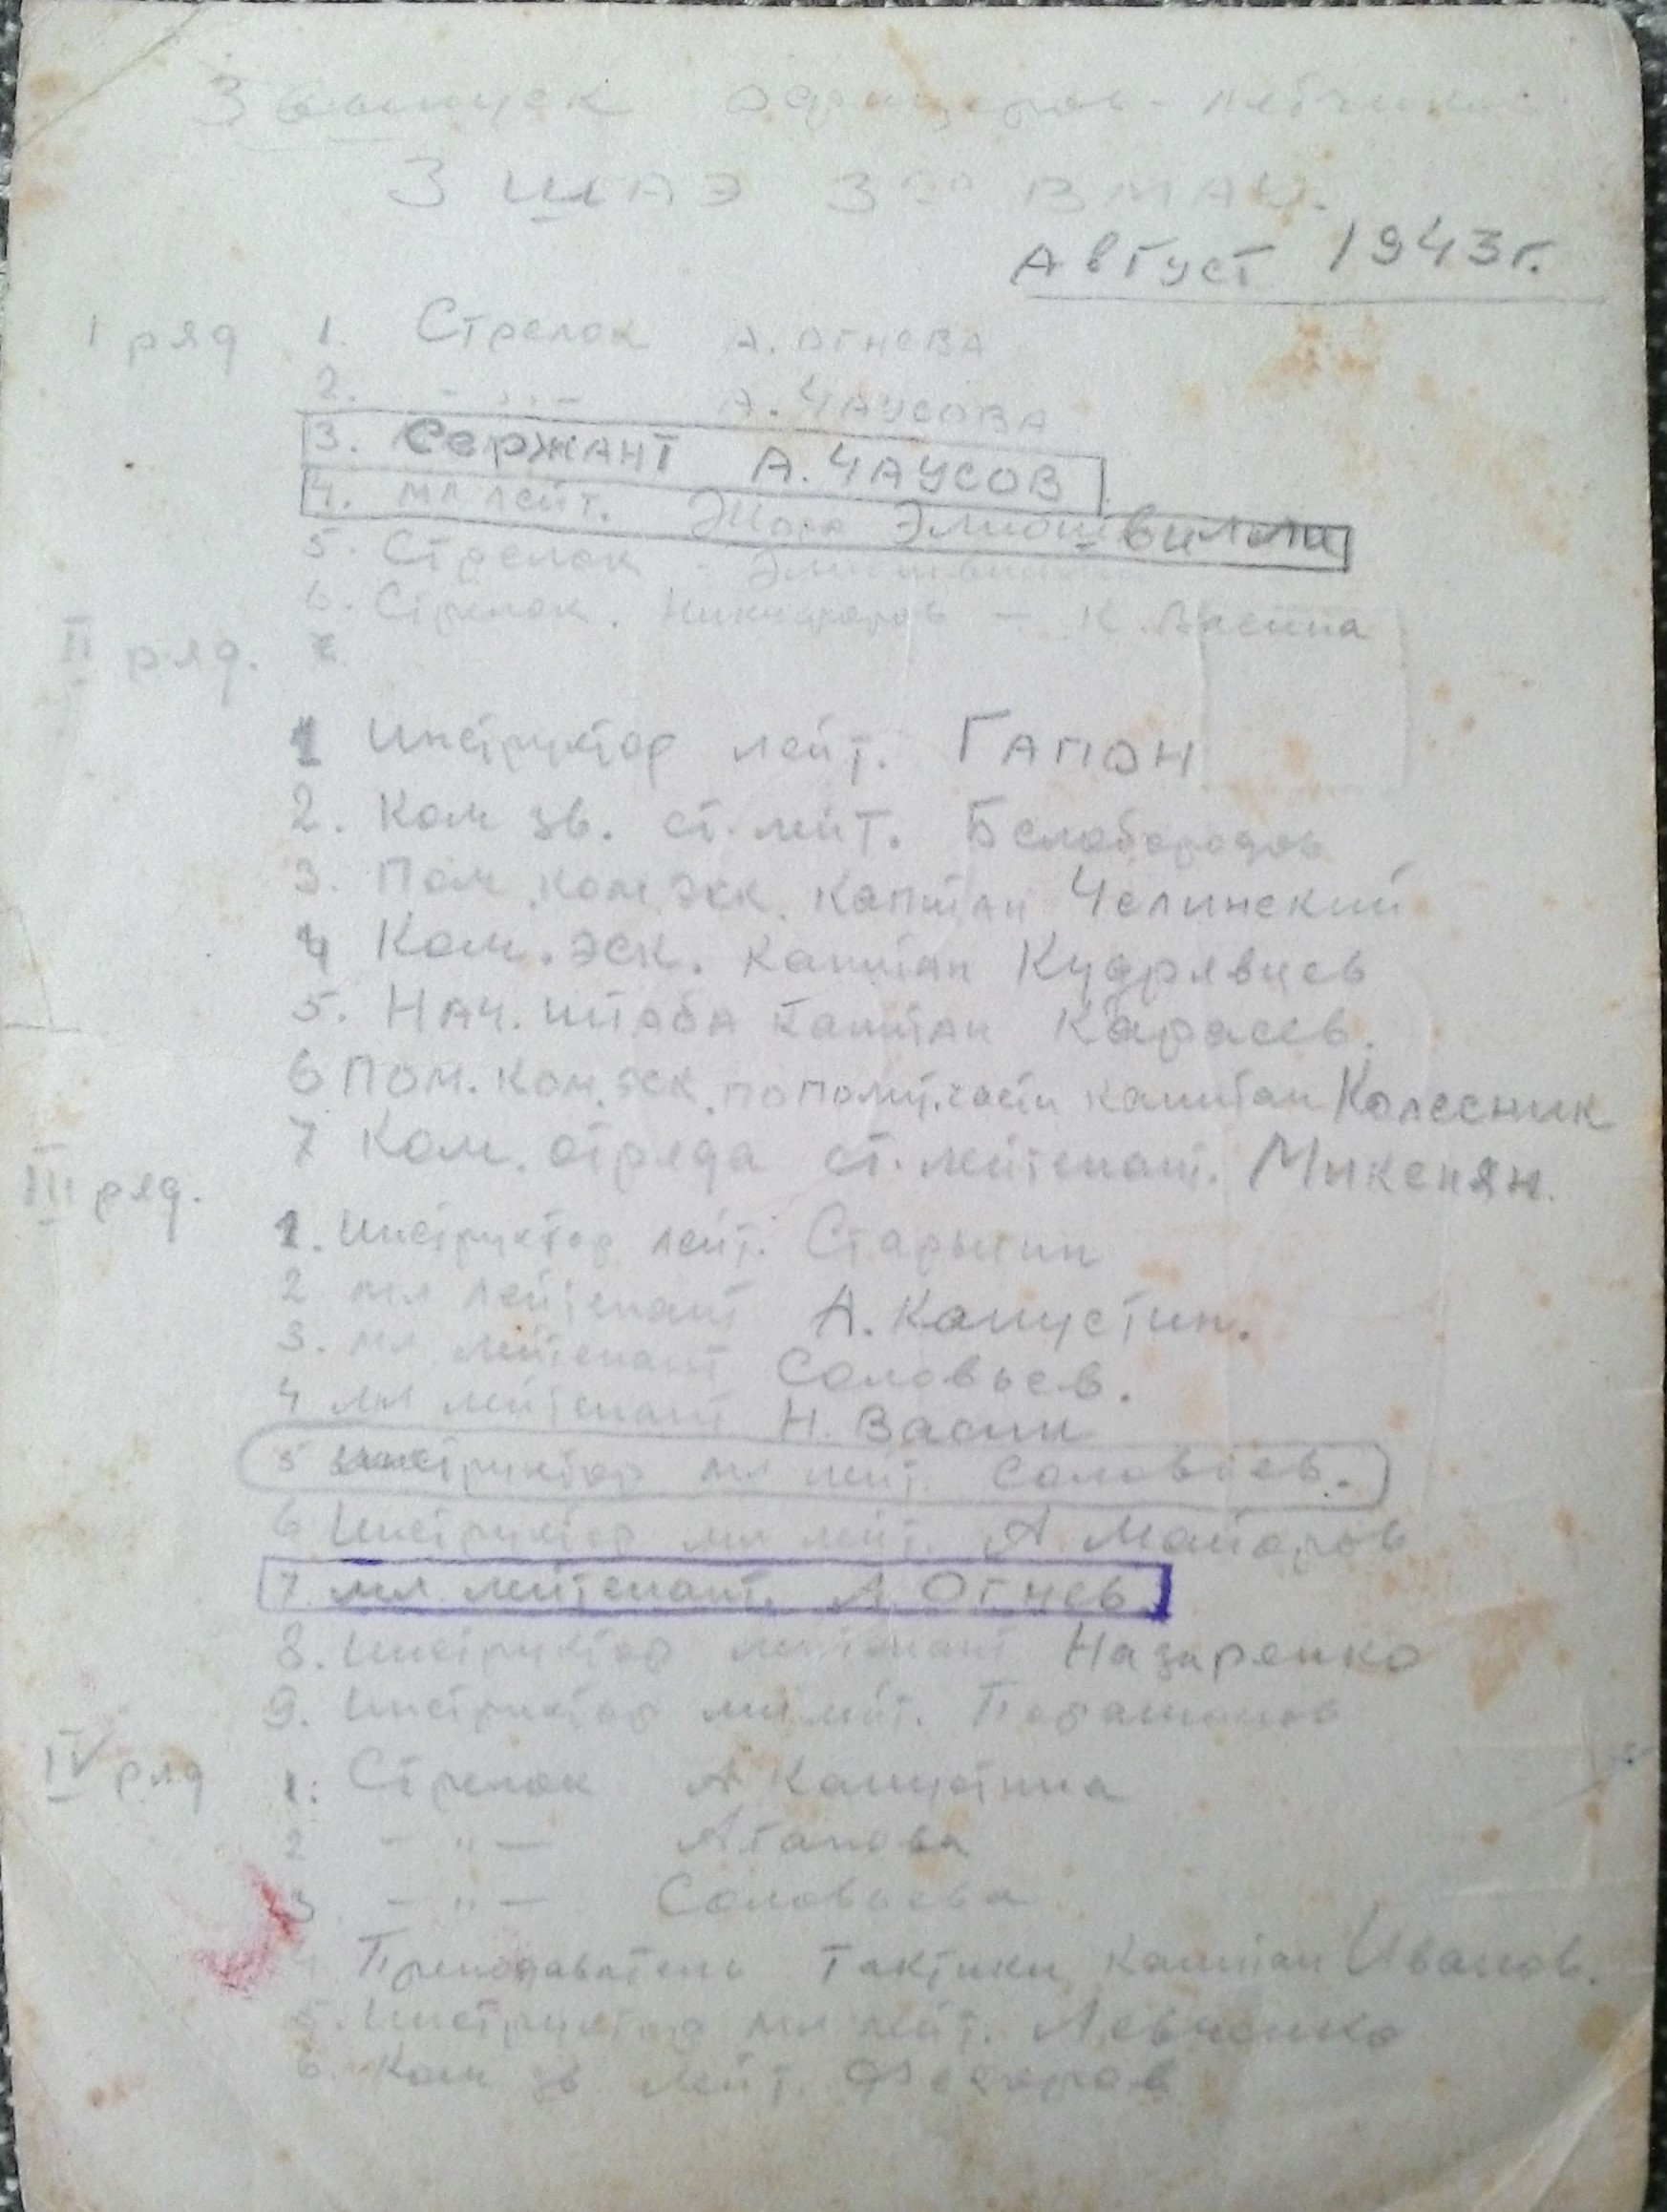 3 выпуск офицеров-летчиков
3 ШАЭ 3го ВМАУ.
Август 1943г.
I ряд 1. Стрелок А. Огнева
2. - „ - А. Чаусова
3. Сержант А. Чаусов
4. мл лейт. Жора Элиошвилли
5. Стрелок -
6. Стрелок. Никифоров - К. Васина
II ряд.
1 Инструктор лейт. Гапон
2. Ком зв. ст. лейт. Белобородов
3. Пом. ком. эск. капитан Челинский
4 Ком. эск. капитан Кудрявцев
5. Нач. штаба капитан Карасев.
6 Пом. ком. эск. по полит.части капитан Колесник
7 Ком. отряда ст. лейтенант. Микенян.
III ряд.
1. Инструктор лейт. Старынин
2 мл лейтенант А. Капустин.
3. мл лейтенант Соловьев.
4 мл лейтенант Н. Васин
5 инструктор мл лейт. Соловьев.
6 Инструктор мл лейт. А. Майоров
7. мл. лейтенант. А. Огнев.
8. Инструктор лейтенант Назаренко
9. Инструктор мл лейт.
IV ряд 1. Стрелок А Капустина
2 - „ - Агапова
3 - „ - Соловьева
4 Преподаватель тактики капитан Иванов.
5. Инструктор мл лейт. Левченко
6. Ком зв лейт. Федоров